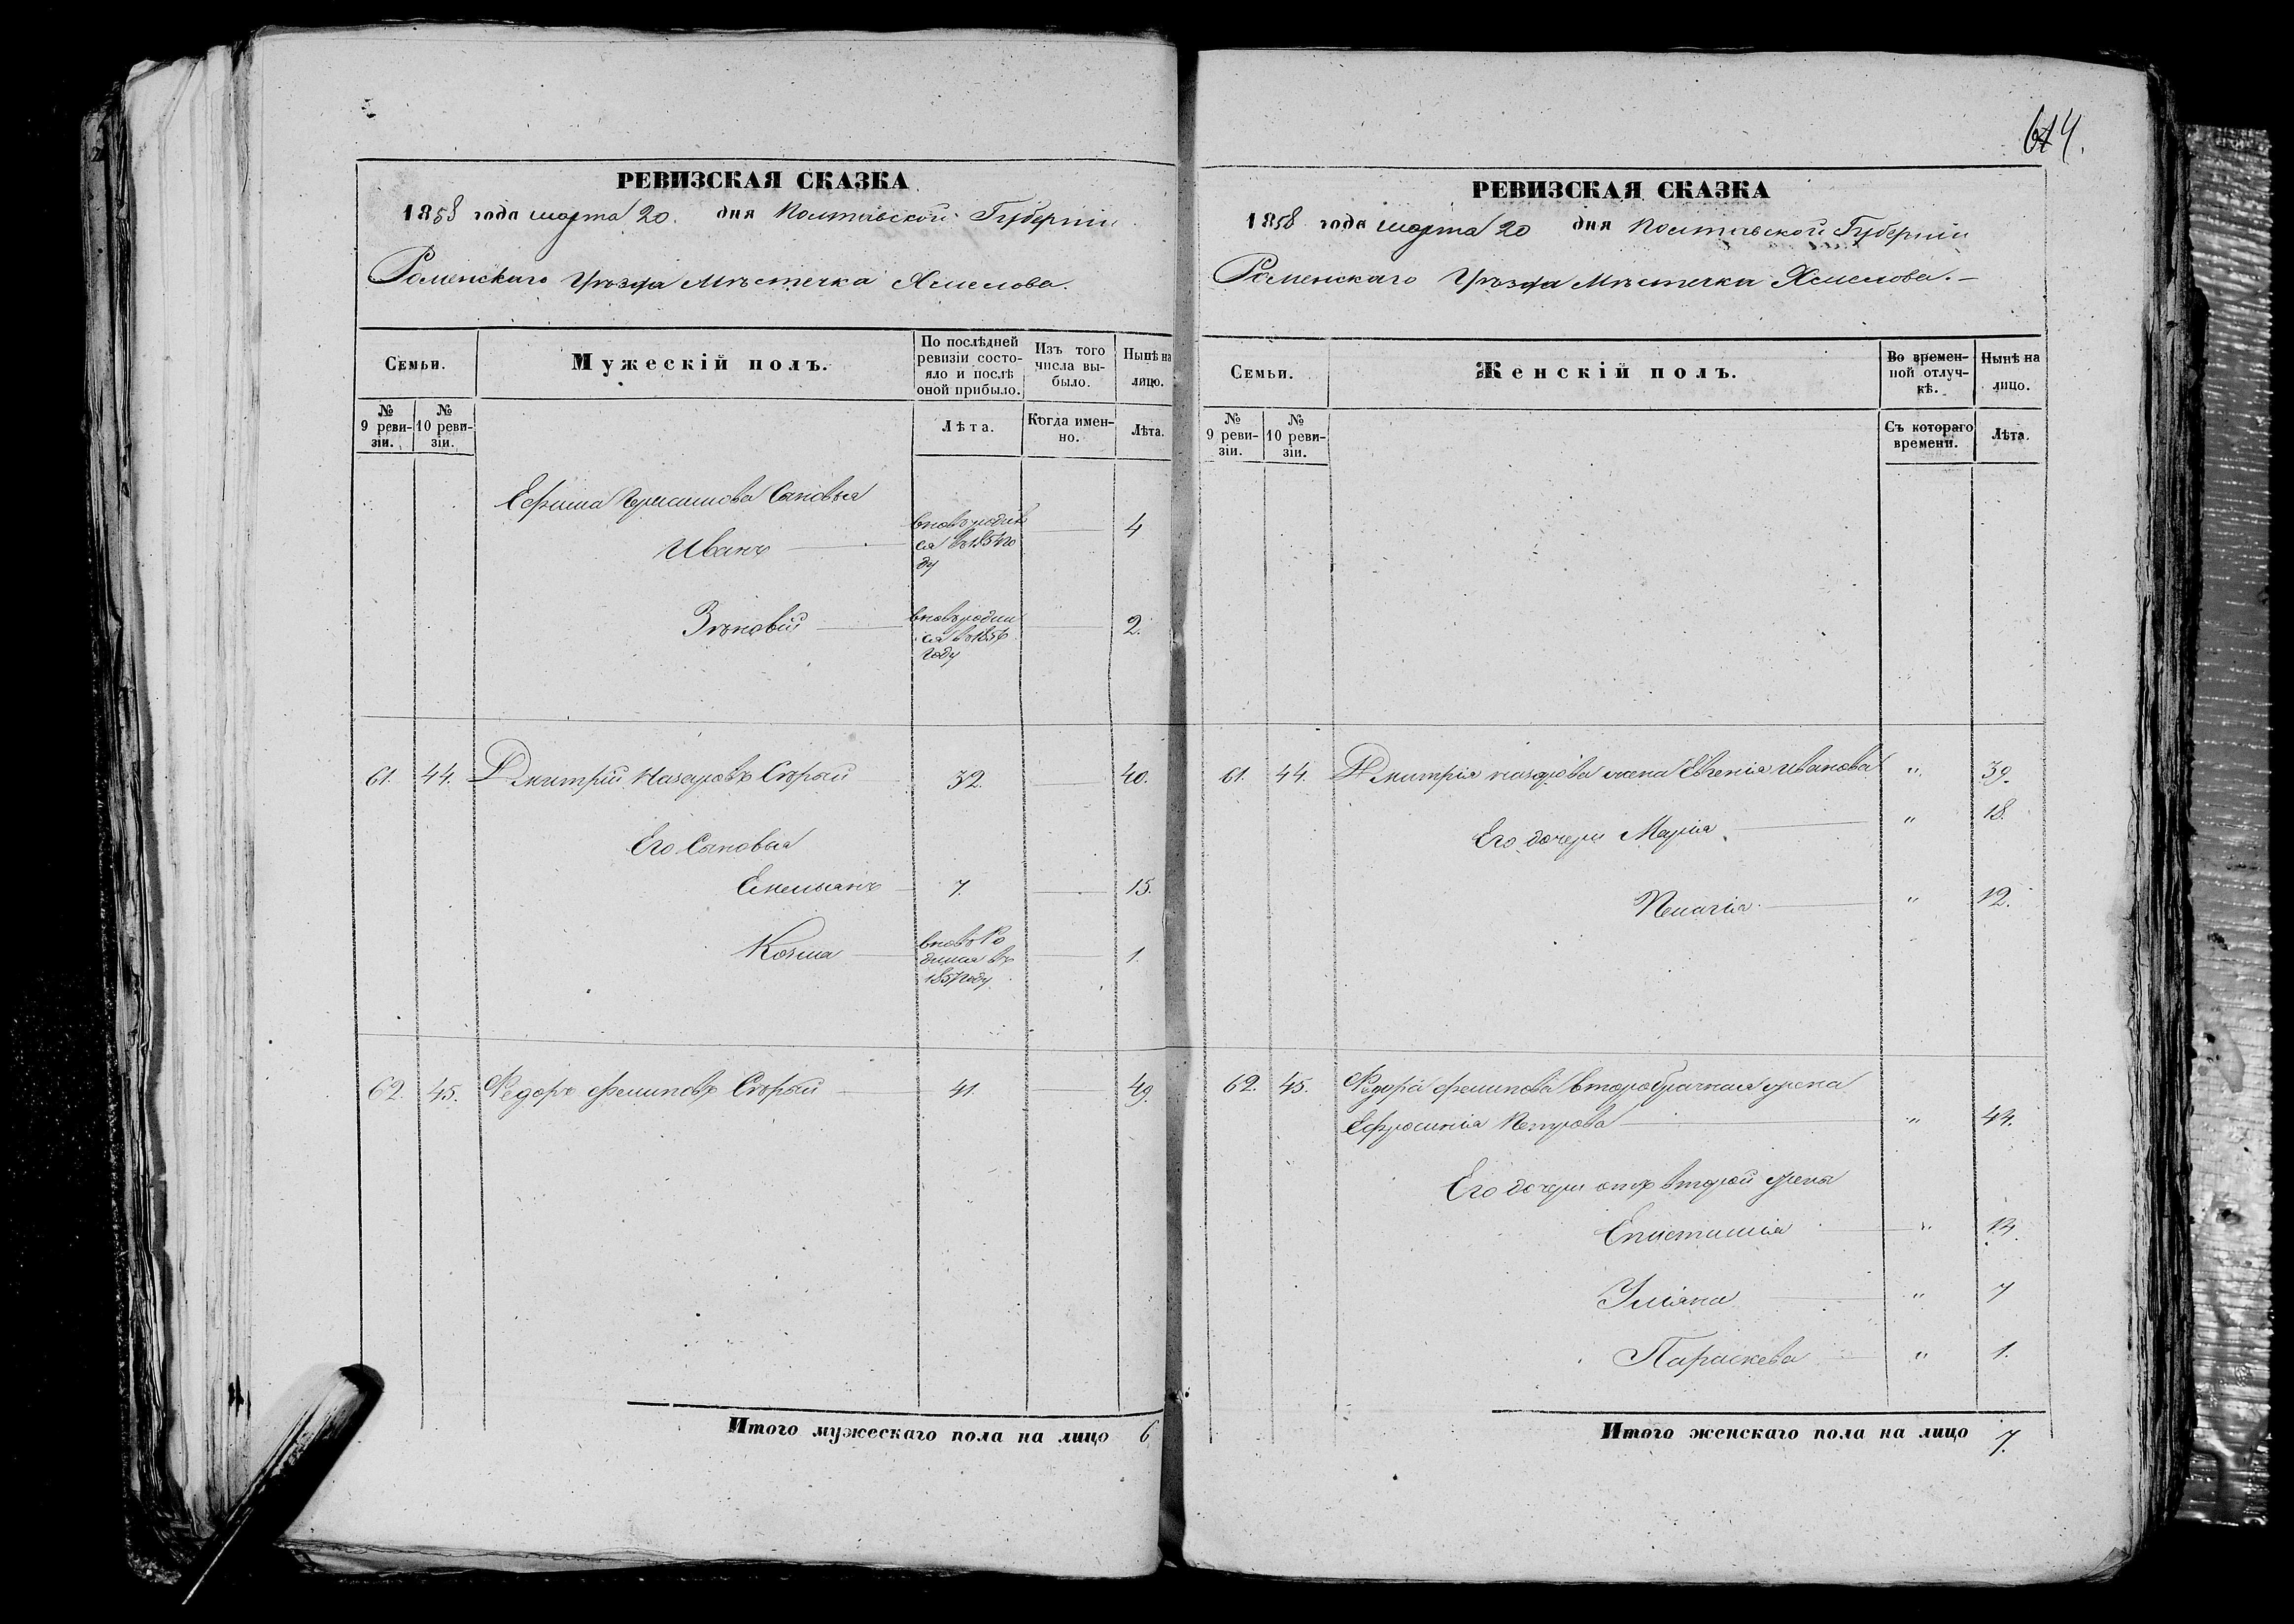 614.
РЕВИЗСКАЯ СКАЗКА
1858 года марта 20. дня Полтавской Губерніи
Роменскаго Уѣзда Мѣстечка Хмелова.
Семьи.
Мужескій полъ.
По послѣдней ревизіи состояло и послѣ оной прибыло.
Изъ того числа выбыло.
Нынѣ на лицо.
№ 9 ревизіи.
№ 10 ревизіи.
Лѣта.
Когда именно.
Лѣта.
Ефима Герасимова Сыновья
Иванъ вновь родив 4
ся въ 1854 го
ду
Зѣновій вновь родил 2.
ся въ 1856
году
61. 44. Дмитрій Назаровъ Сѣрый 32. 40.
Его Сыновья
Емельянъ 7. 15.
Козма вновь Ро 1.
дился въ
1857 году
62. 45. Федоръ Филиповъ Сѣрый 41. 49.
Итого мужескаго пола на лицо 6
РЕВИЗСКАЯ СКАЗКА
1858 года марта 20 дня Полтавской Губерніи
Роменскаго Уѣзда Мѣстечка Хмелова.
Семьи.
Женскій полъ.
Во временной отлучкѣ.
Нынѣ на лицо.
№ 9 ревизіи.
№ 10 ревизіи.
Съ котораго времени.
Лѣта.
61. 44. Дмитрія Назарова жена Евгенія Иванова " 39.
Его дочери Марія " 18.
Пелагія " 12.
62. 45. Федора Филипова второбрачная жена
Ефросинія Петрова " 44.
Его дочери отъ второй жены
Епистимія "
Уліяна " 7
Параскева " 1.
Итого женскаго пола на лицо 7.